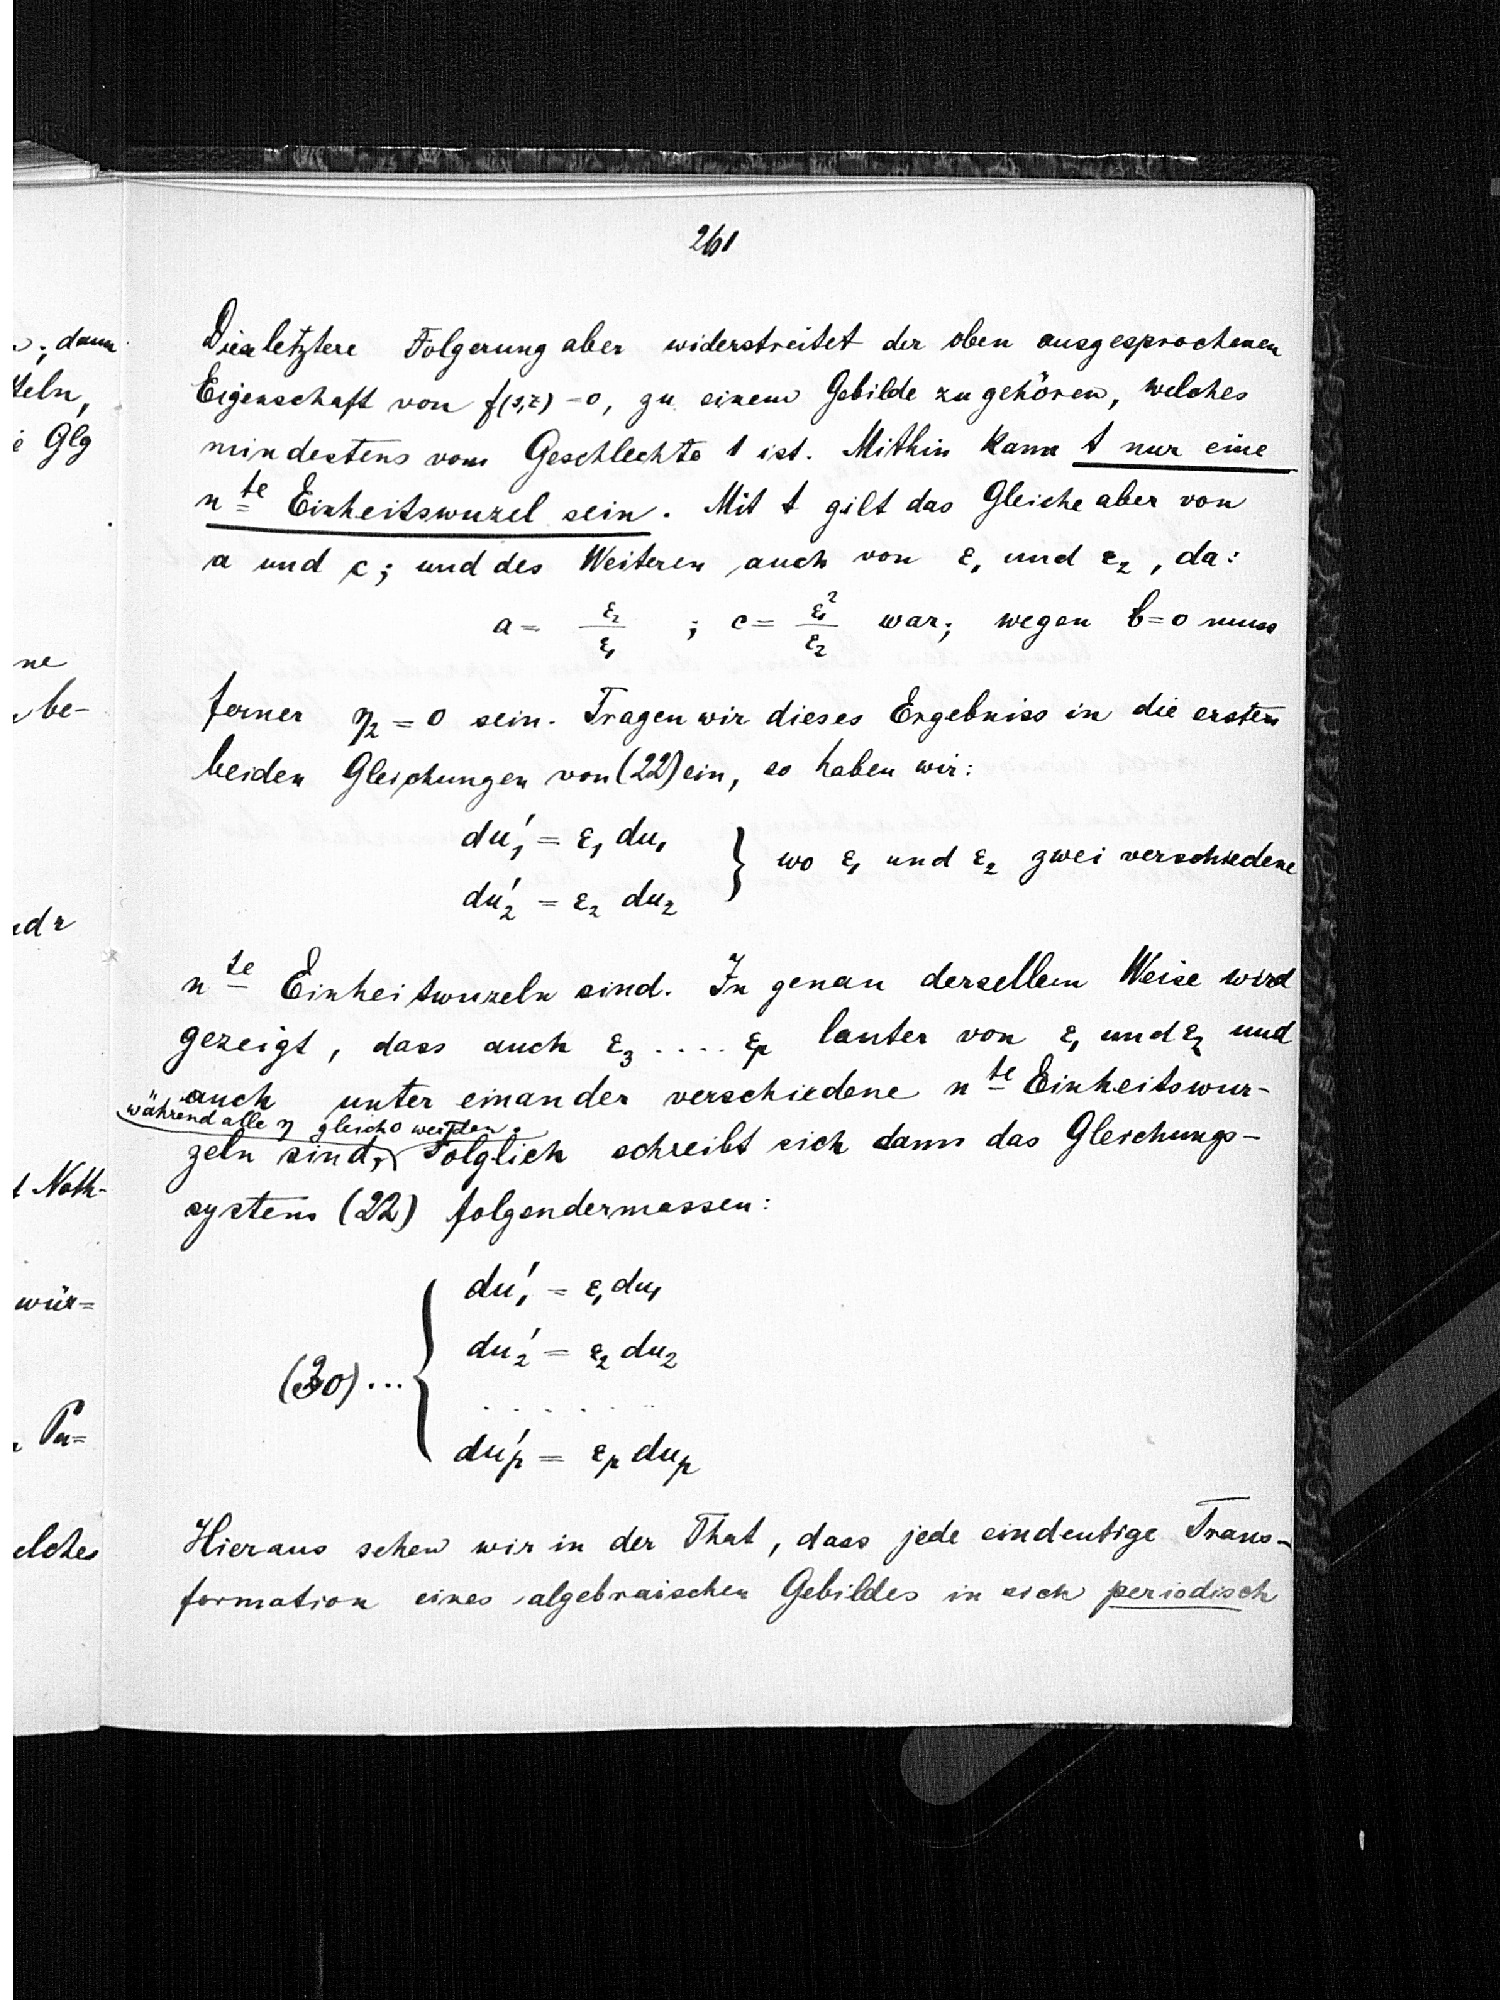 n; dann
teln,
e Glg
ne
n be-
ndr
t Noth-
wür=
n Pu=
elches
261
Die letztere Folgerung aber widerstreitet der oben ausgesprochenen
Eigenschaft von f(s,z) = 0, zu einem Gebilde zu gehören, welches
mindestens vom Geschlechte 1 ist. Mithin kann t nur eine
n te Einheitswurzel sein. Mit t gilt das Gleiche aber von
a und c; und des Weiteren auch von ε₁ und ε₂, da:
a = ε₂/ε₁ ; c = ε₁²/ε₂ war; wegen b=0 muss
ferner η₂ = 0 sein. Tragen wir dieses Ergebniss in die ersten
beiden Gleichungen von (22) ein, so haben wir:
du₁' = ε₁ du₁
du₂' = ε₂ du₂ } wo ε₁ und ε₂ zwei verschiedene
n te Einheitwurzeln sind. In genau derselben Weise wird
gezeigt, dass auch ε₃ .... εp lauter von ε₁ und ε₂ und
auch unter einander verschiedene n te Einheitswur-
während alle η gleich 0 werden.
zeln sind, Folglich schreibt sich dann das Gleichungs-
system (22) folgendermassen:
du₁' = ε₁ du₁
du₂' = ε₂ du₂
(30) ... { . . . . . . .
du'p = εp dup
Hieraus sehen wir in der That, dass jede eindeutige Trans-
formation eines algebraischen Gebildes in sich periodisch